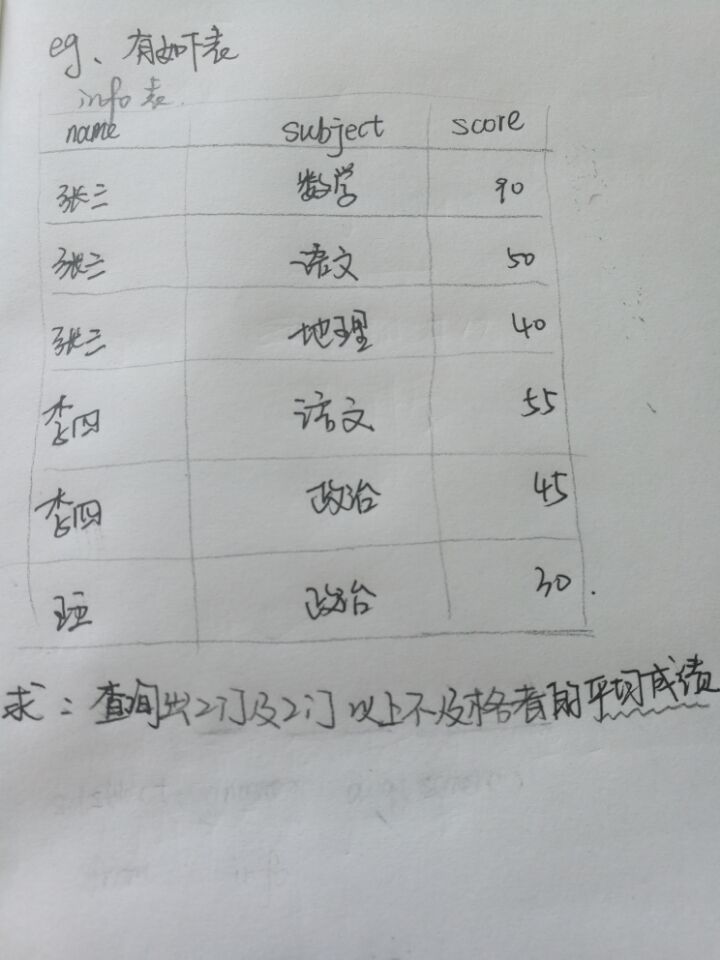 eg、有如下表
info表.
name subject score
张三 数学 90
张三 语文 50
张三 地理 40
李四 语文 55
李四 政治 45
王五 政治 30.
求：查询出2门及2门以上不及格者的平均成绩